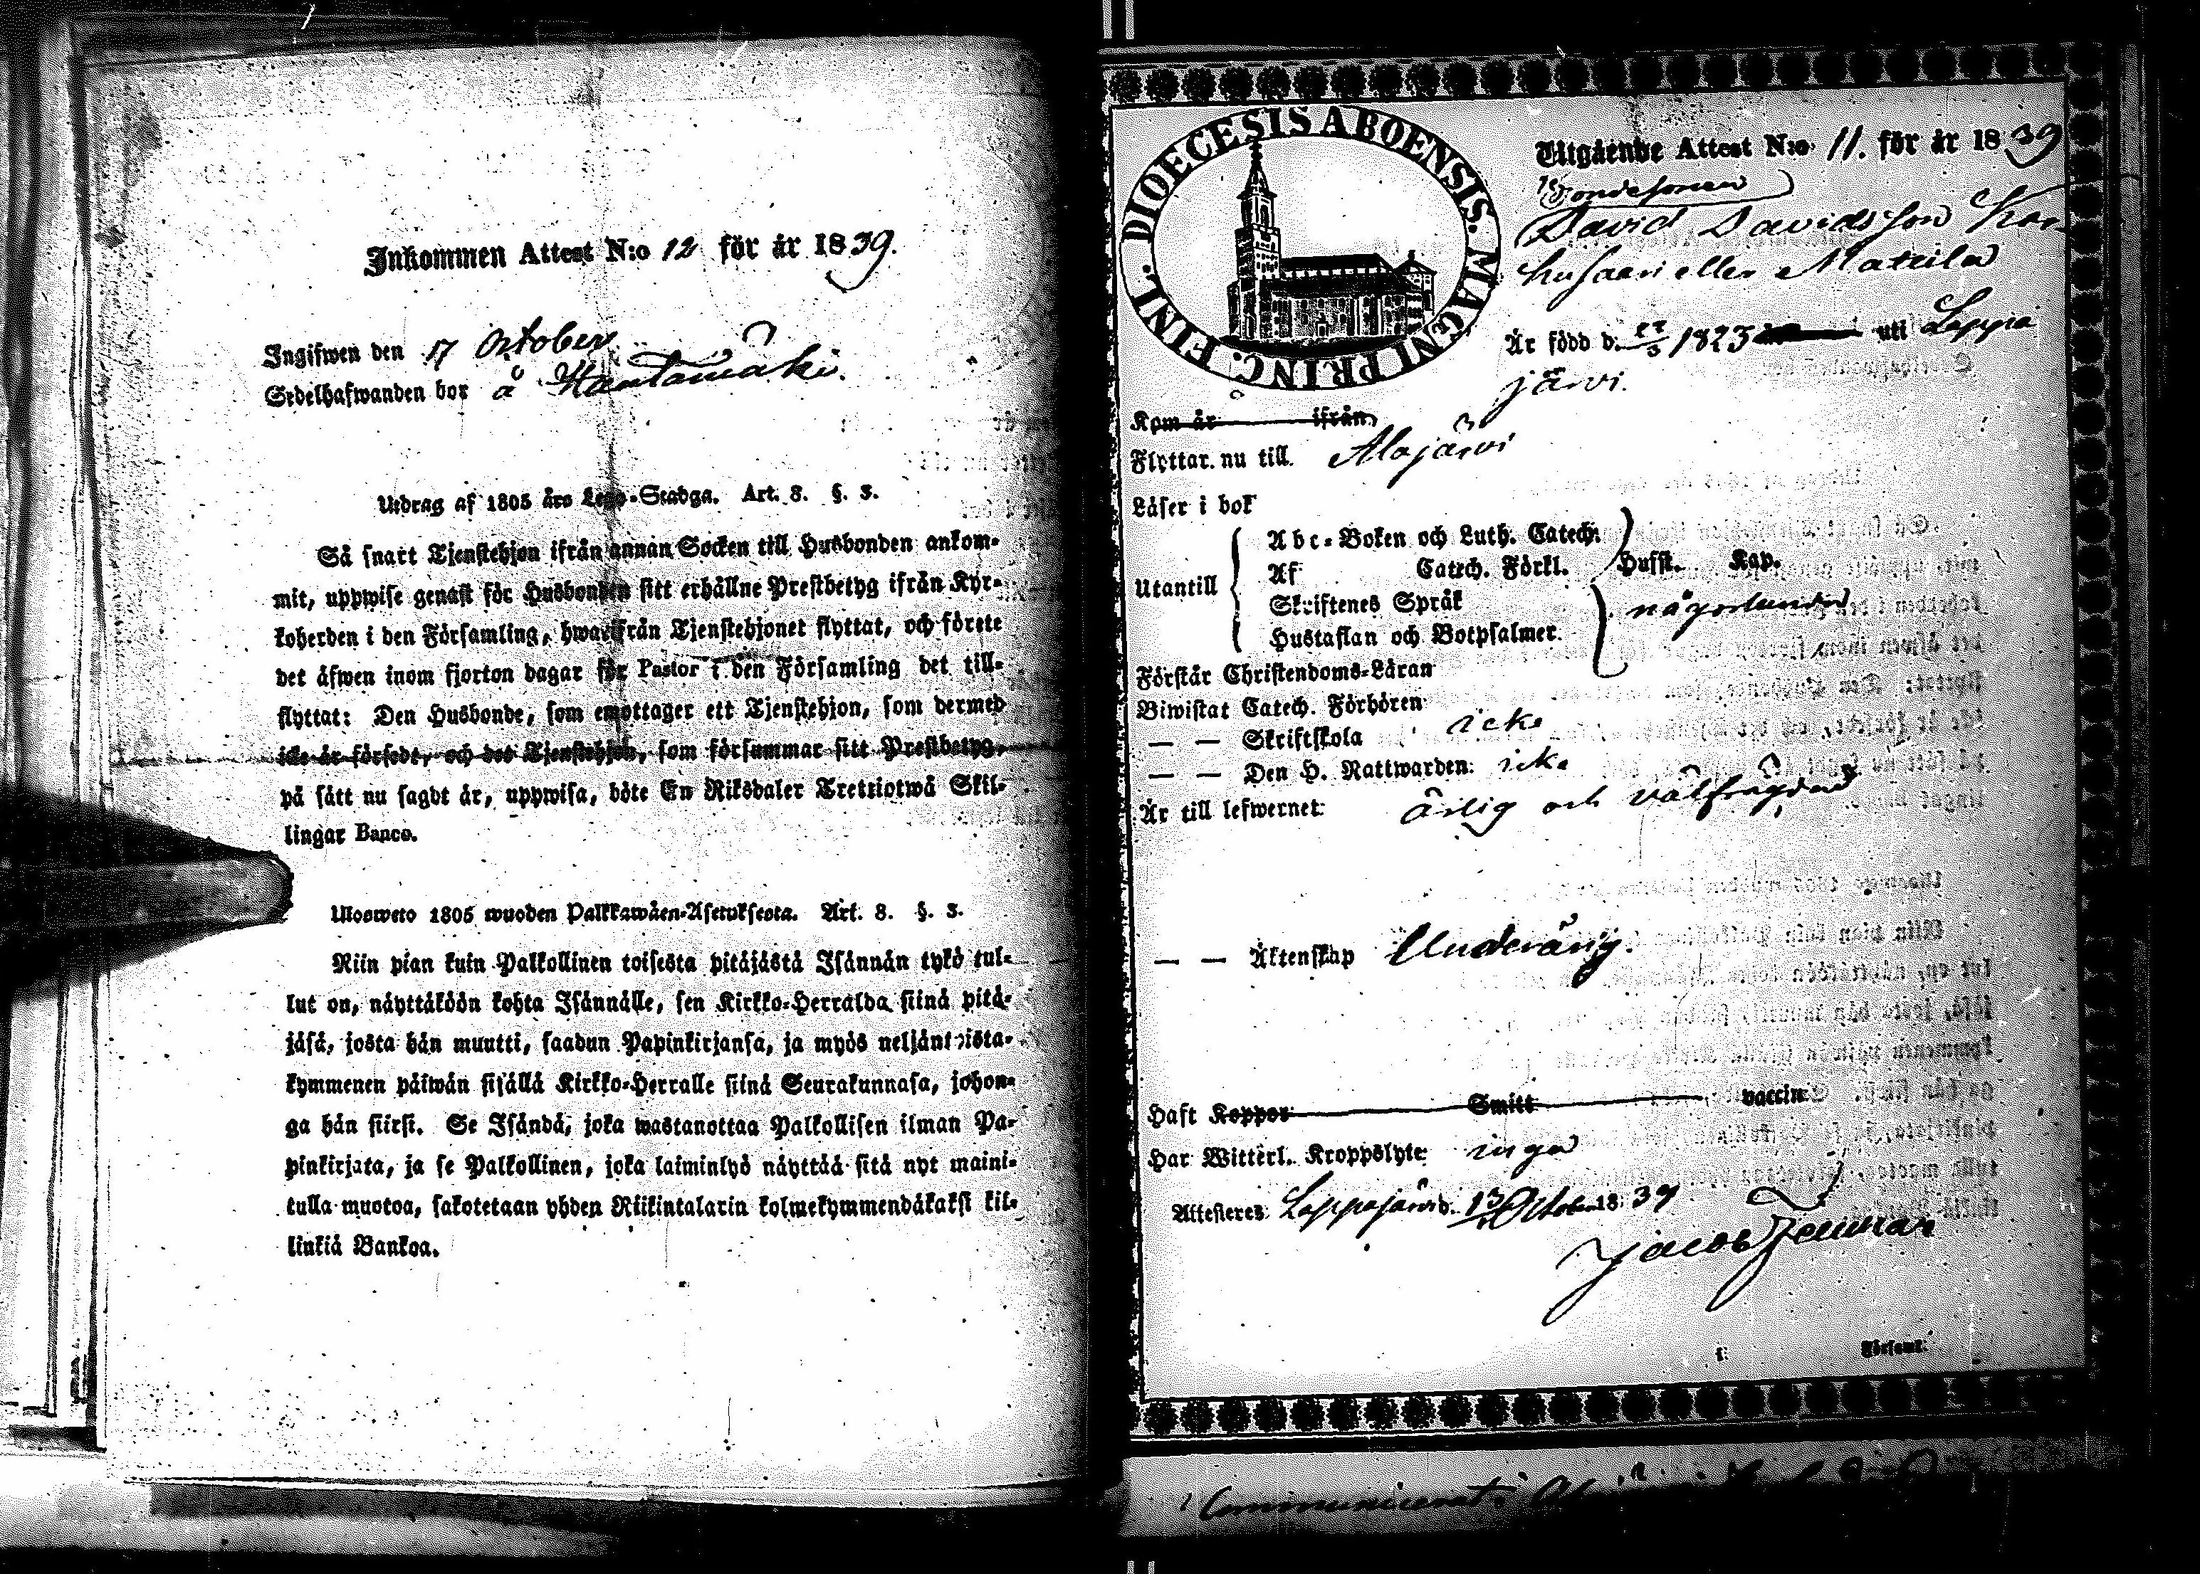 Inkommen Attest N:o 12 för år 1839.
Ingifwen den 17 October
Sedelhafwanden bor å Hautamäki.
Utdrag af 1805 års Lego-Stadga. Art. 8. §. 3.
Så snart Tjenstehjon ifrån annan Socken till Husbonden ankom-
mit, uppwise genast för Husbonden sitt erhållne Prestbetyg ifrån Kyr-
koherden i den Församling, hwarifrån Tjenstehjonet flyttat, och förete
det äfwen inom fjorton dagar för Pastor i den Församling det till-
flyttat: Den Husbonde, som emottager ett Tjenstehjon, som dermed
icke är försedt, och det Tjenstehjon, som försummar sitt Prestbetyg,
på sätt nu sagdt är, uppwisa, böte En Riksdaler Trettiotwå Skil-
lingar Banco.
Ulosweto 1805 wuoden Palkkawäen-Asetuksesta. Art. 8. §. 3.
Niin pian kuin Palkollinen toisesta pitäjästä Isännän tykö tul-
lut on, näyttäköön kohta Isännälle, sen Kirkko-Herralda siinä pitä-
jäsä, josta hän muutti, saadun Papinkirjansa, ja myös neljäntoista-
kymmenen päiwän sisällä Kirkko-Herralle siinä Seurakunnasa, johon-
ga hän siirsi. Se Isändä, joka wastanottaa Palkollisen ilman Pa-
pinkirjata, ja se Palkollinen, joka laiminlyö näyttää sitä nyt maini-
tulla muotoa, sakotetaan yhden Riikintalarin kolmekymmendäkaksi kil-
linkiä Bankoa.
DIOECESIS ABOENSIS. MAGNI PRINC. FINL.
Utgående Attest N:o 11. för år 1839
Bondesonen
David Davidsson Kor-
husaari eller Mattila
Är född d. 22/3 1823 uti Lappa
järvi.
Kom år ifrån
Flyttar nu till Alajärvi
Läser i bok
Utantill
Abc-Boken och Luth. Catech.
Af Catech. Förkl. Hufst. Kap.
Skriftenes Språk någorlunda
Hustaflan och Botpsalmer.
Förstår Christendoms-Läran
Biwistat Catech. Förhören
— — Skriftskola icke
— — Den H. Nattwarden icke
Är till lefwernet ärlig och välfrägdad
— — Äktenskap Underårig.
Haft Koppor Smitt vaccin
Har Witterl. Kroppslyte inga
Attesteres Lappajärvi d. 13 October 1839
Jacob
i Församl.
Communicerat i